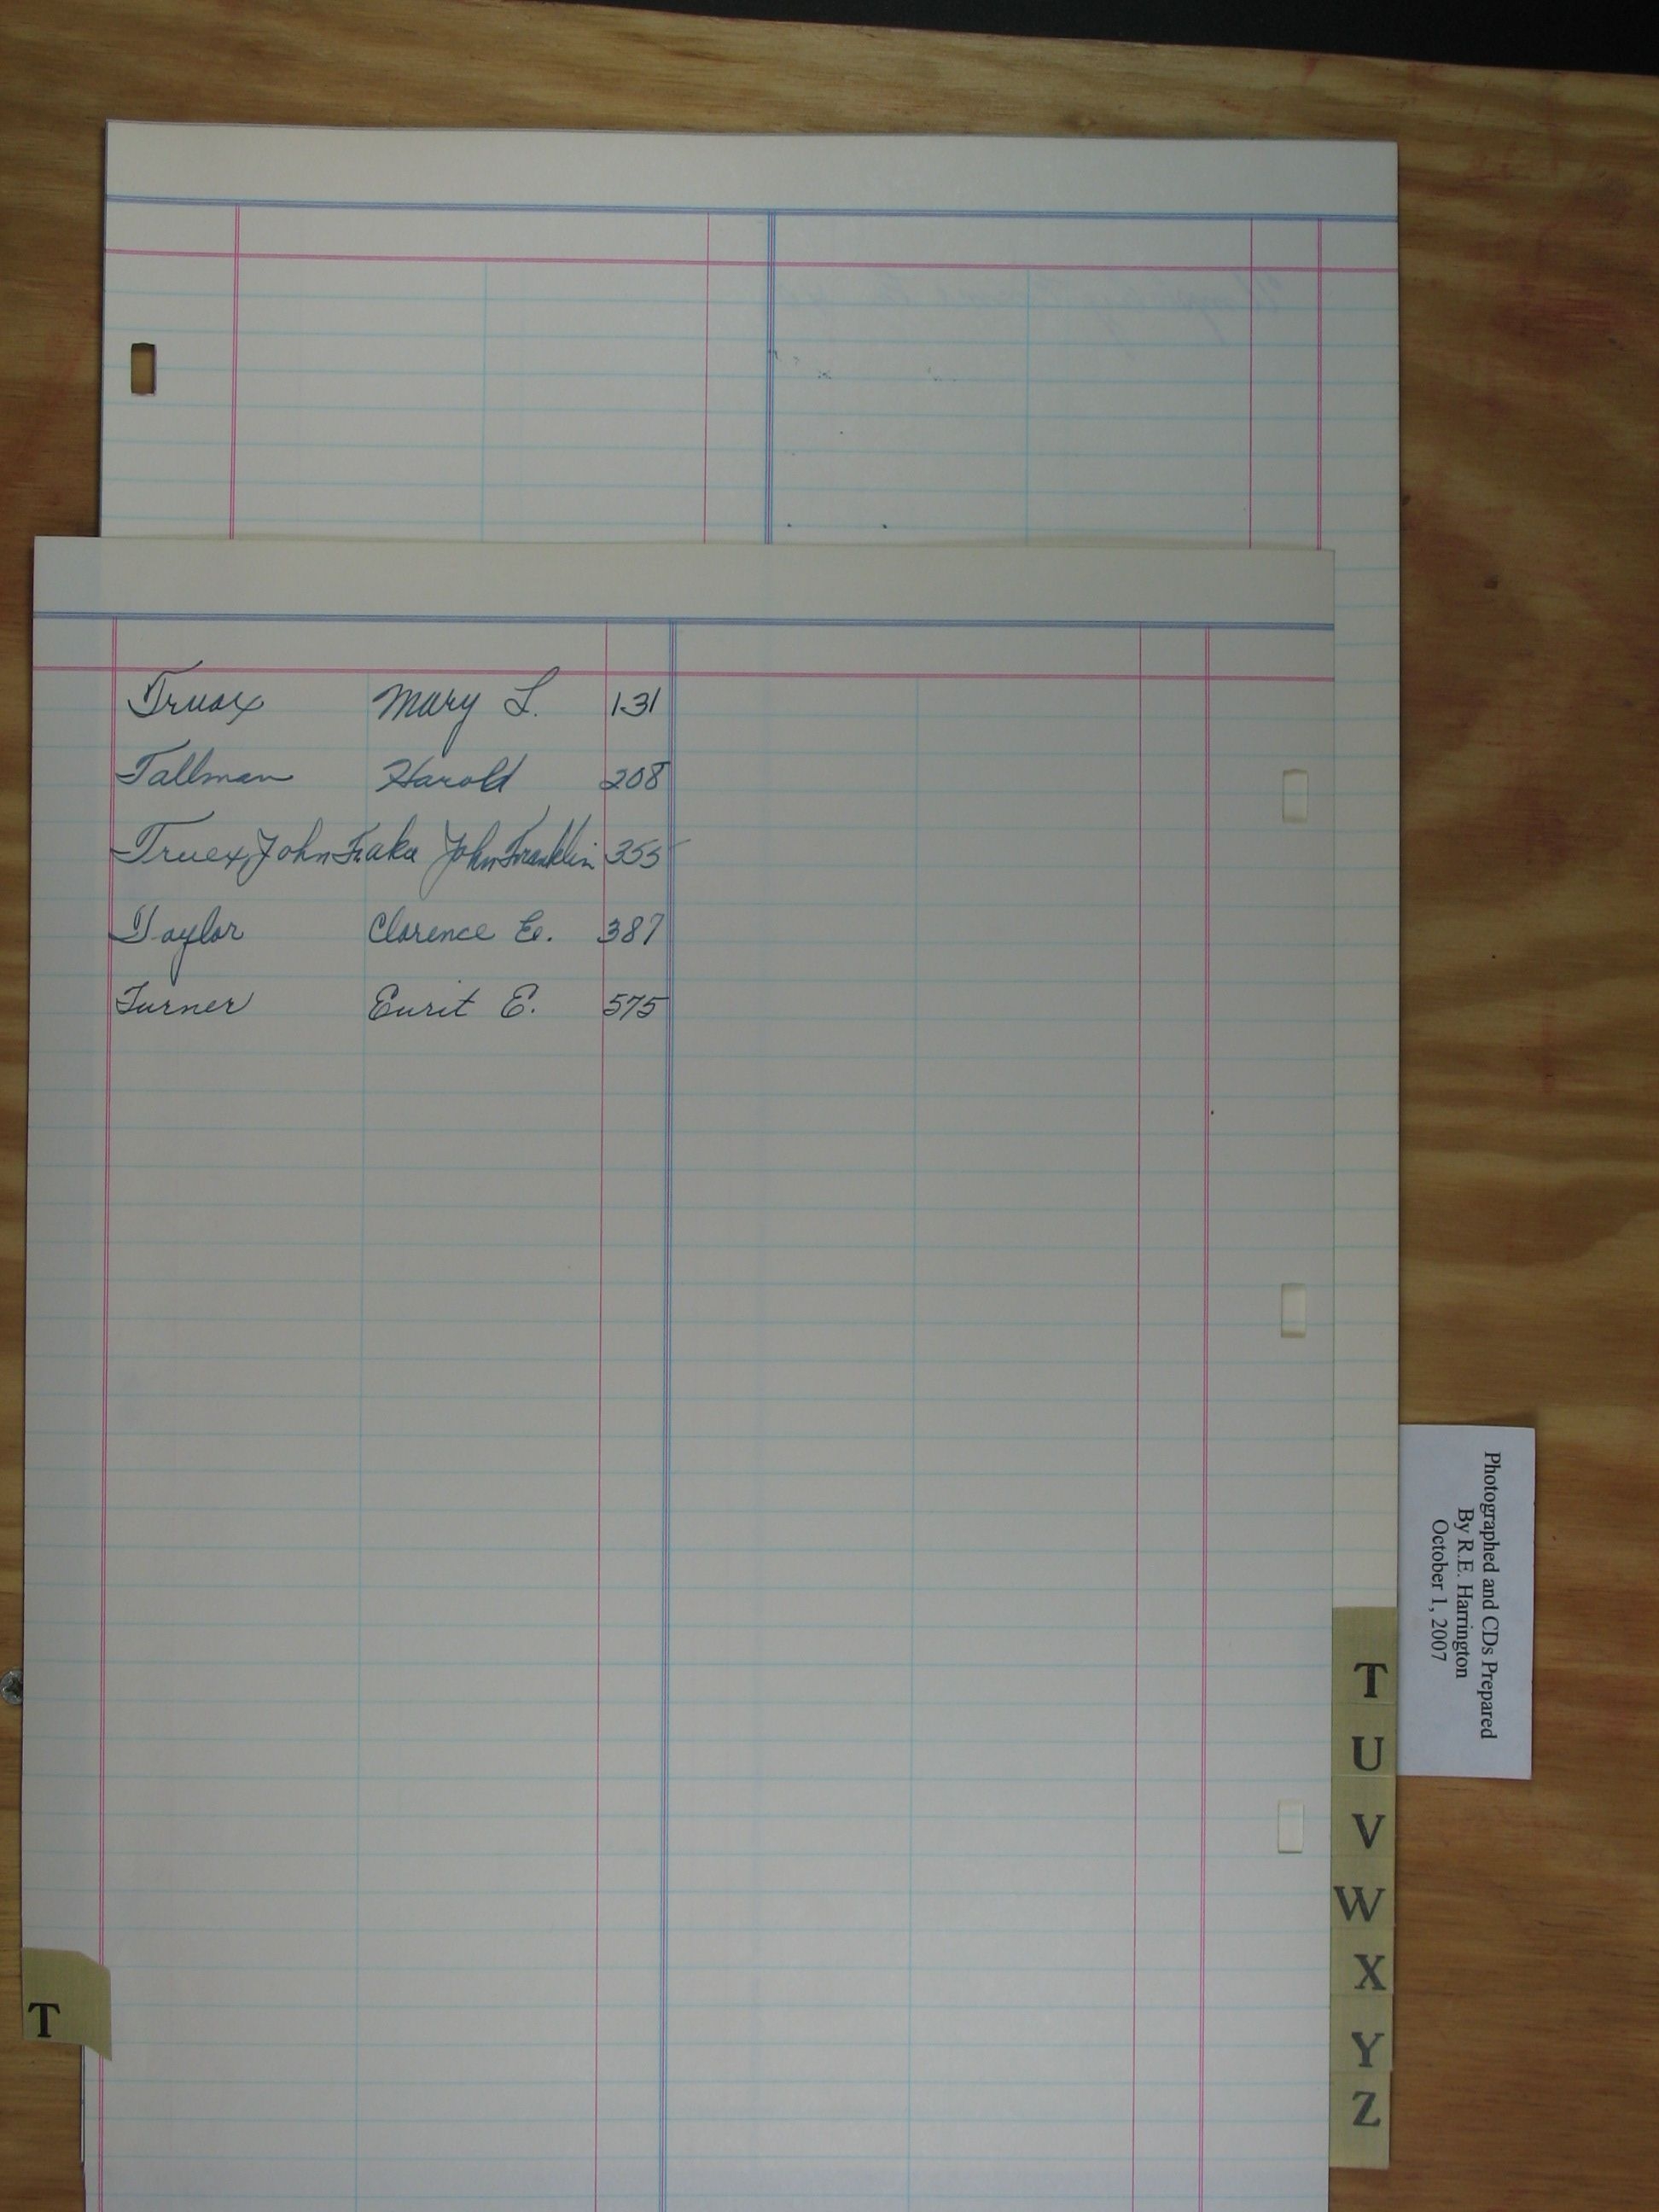 Truax Mary L. 131
Tallman Harold 208
Truex, John F. aka John Franklin 355
Taylor Clarence E. 387
Turner Eurit E. 575
Photographed and CDs Prepared
By R.E. Harrington
October 1, 2007
T
U
V
W
X
Y
Z
T